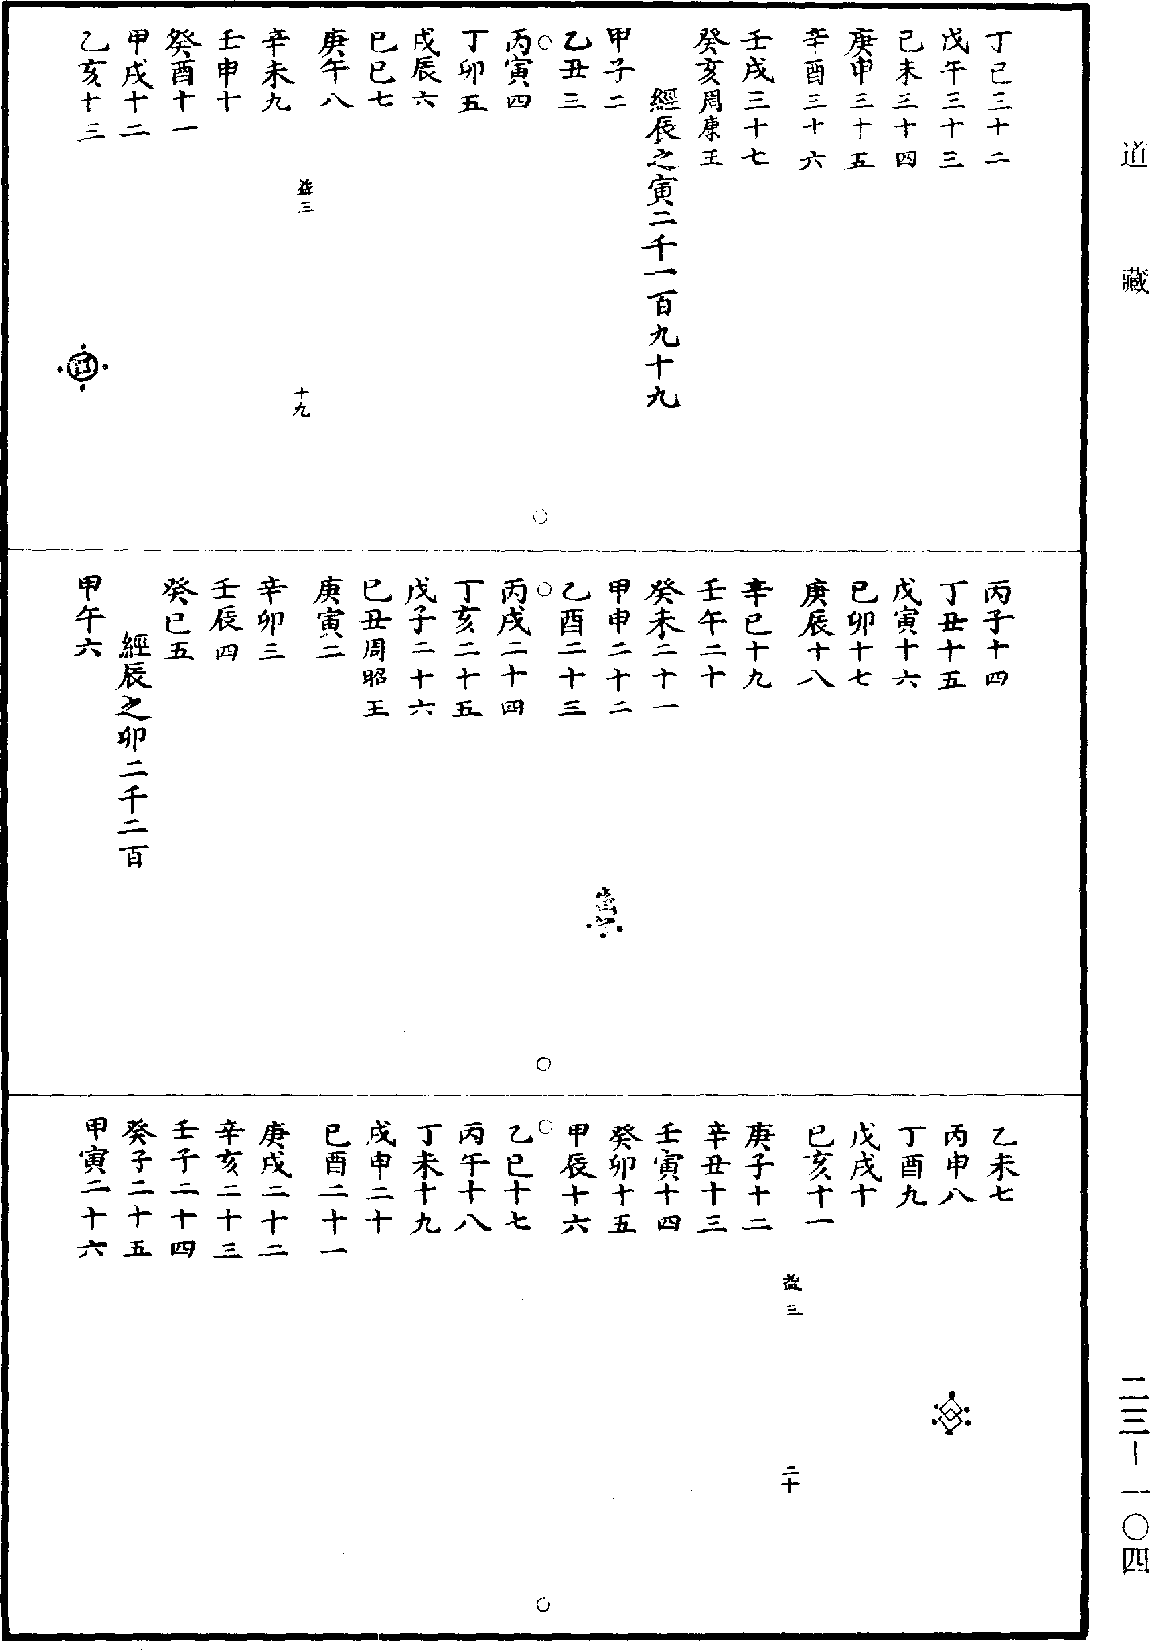 道藏
丁巳三十二
戊午三十三
己未三十四
庚申三十五
辛酉三十六
壬戌三十七
癸亥周康王
經辰之寅二千一百九十九
甲子二
乙丑三
丙寅四
丁卯五
戊辰六
己巳七
庚午八
益三
十九
辛未九
壬申十
癸酉十一
甲戌十二
乙亥十三
丙子十四
丁丑十五
戊寅十六
己卯十七
庚辰十八
辛巳十九
壬午二十
癸未二十一
甲申二十二
乙酉二十三
丙戌二十四
丁亥二十五
戊子二十六
己丑周昭王
庚寅二
辛卯三
壬辰四
癸巳五
經辰之卯二千二百
甲午六
乙未七
丙申八
丁酉九
戊戌十
己亥十一
益三
二十
庚子十二
辛丑十三
壬寅十四
癸卯十五
甲辰十六
乙巳十七
丙午十八
丁未十九
戊申二十
己酉二十一
庚戌二十二
辛亥二十三
壬子二十四
癸子二十五
甲寅二十六
二三-一〇四